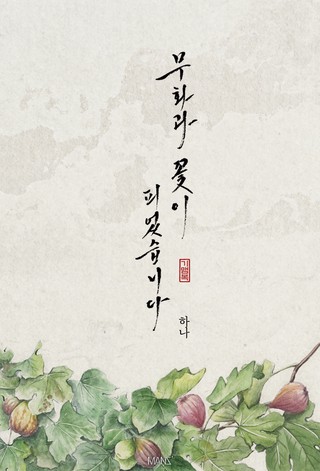 무화과 꽃이
피었습니다
하나
MANS